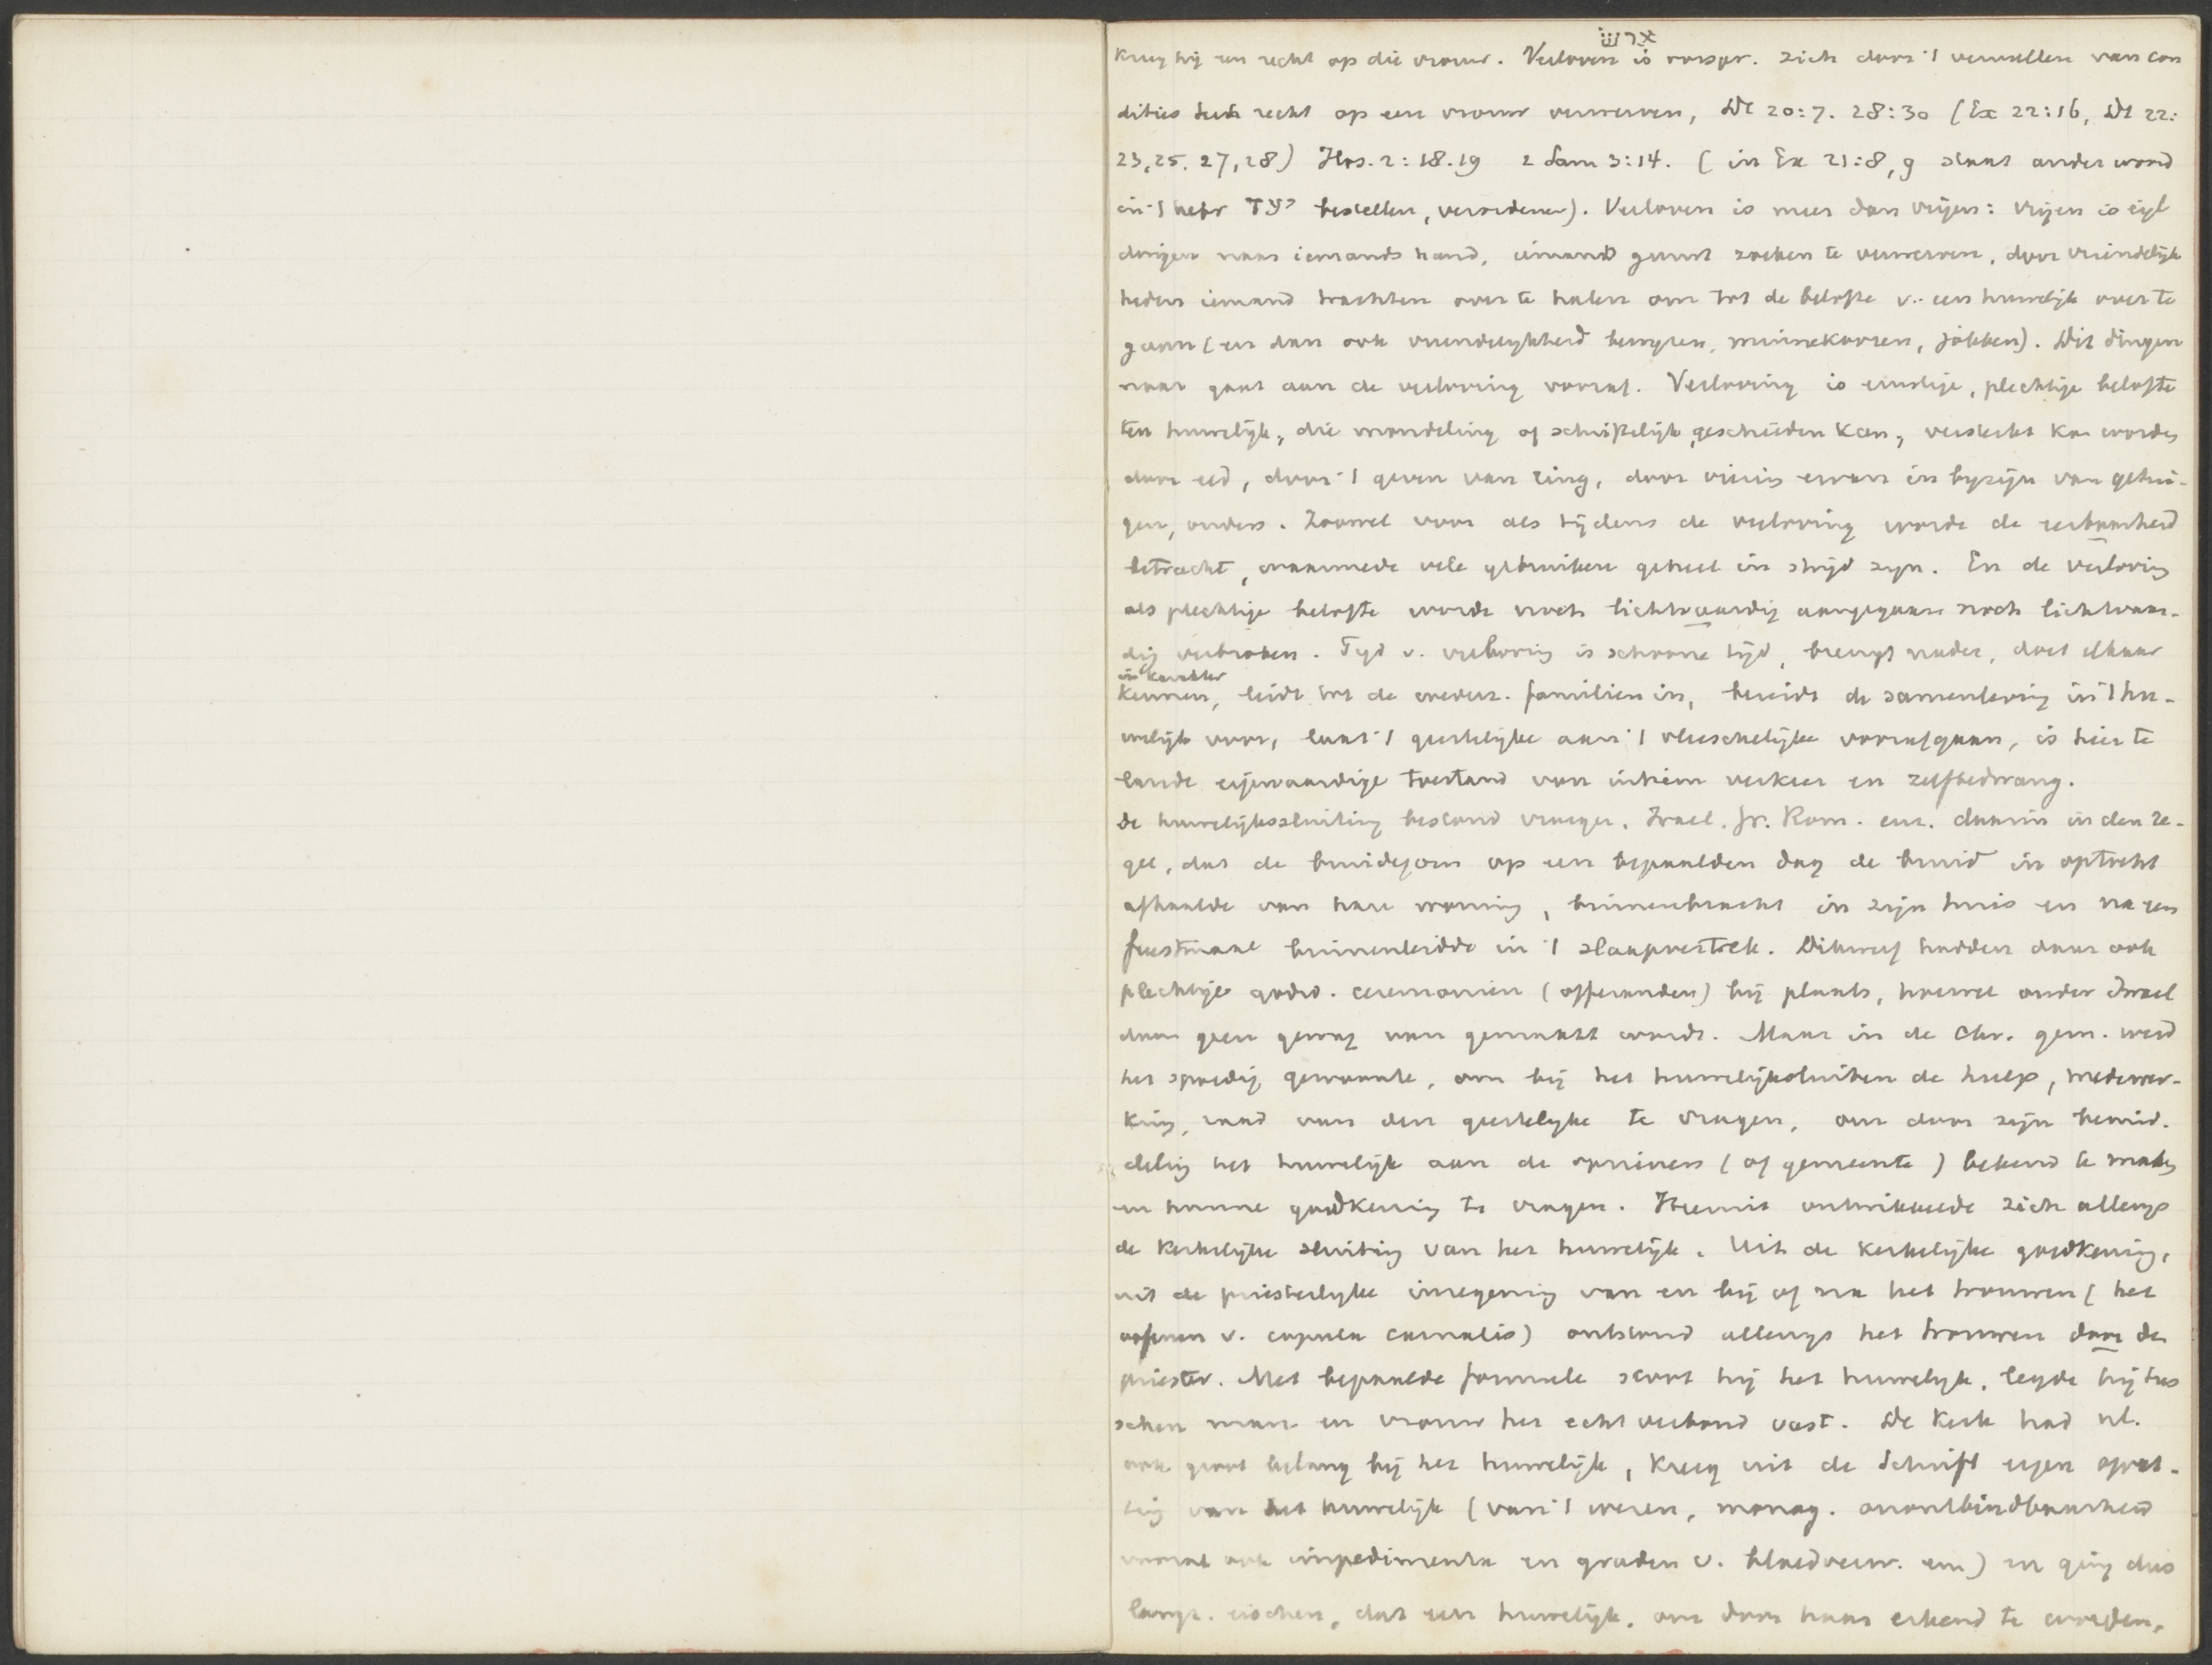 ארשׂ
kreeg hij een recht op die vrouw. Verloven is oorspr. zich door 't vervullen van con
dities het recht op een vrouw verwerven, Dt 20:7. 28:30 (Ex 22:16, Dt 22:
23, 25. 27, 28) Hos. 2:18.19 2 Sam 3:14. (in Ex 21:8, 9 staat ander woord
in 't hebr יעד bestellen, verordenen). Verloven is meer dan vrijen: vrijen is eigl
dingen naar iemands hand, iemands gunst zoeken te verwerven, door vriendelijk
heden iemand trachten over te halen om tot de belofte v. een huwelijk over te
gaan (en dan ook vriendelijkheid bewijzen, minnekoozen, ). Dit dingen
naar gaat aan de verloving vooraf. Verloving is ernstige, plechtige belofte
ten huwelijk, die mondeling of schriftelijk geschieden kan, versterkt kan worden
door eed, door 't geven van ring, door viering ervan in bijzijn van getui-
gen, ouders. Zoowel voor als tijdens de verloving worde de eerbaarheid
betracht, waarmede vele gebruiken geheel in strijd zijn. En de verloving
als plechtige belofte worde noch lichtvaardig aangegaan noch lichtvaar-
dig verbroken. Tijd v. verloving is schoone tijd, brengt nader, doet elkaar
in karakter
kennen, leidt tot de wederz. familien in, bereidt de samenleving in 't hu-
welijk voor, laat 't geestelijke aan 't vleeschelijke voorafgaan, is hier te
lande eigenaardige toestand van intiem verkeer en zelfbedwang.
De huwelijkssluiting bestond vroeger, Israel. Gr. Rom. enz. daarin in den re-
gel, dat de bruidegom op een bepaalden dag de bruid in optocht
afhaalde van hare woning, binnenbracht in zijn huis en na een
feestmaal binnenleidde in 't slaapvertrek. Dikwerf hadden daar ook
plechtige godsd. ceremonien (offeranden) bij plaats, hoewel onder Israel
daar geen gewag van gemaakt wordt. Maar in de Chr. gem. werd
het spoedig gewoonte, om bij het huwelijksluiten de hulp, medewer-
king, raad van den geestelijke te vragen, om door zijn bemid-
deling het huwelijk aan de opzieners (of gemeente) bekend te maken
en hunne goedkeuring te vragen. Hieruit ontwikkelde zich allengs
de kerkelijke sluiting van het huwelijk. Uit de kerkelijke goedkeuring,
uit de priesterlijke inzegening van en bij of na het trouwen (het
oefenen v. copula carnalis) ontstond allengs het trouwen door den
priester. Met bepaalde formule sloot hij het huwelijk, legde hij tus
schen man en vrouw het echtverbond vast. De kerk had nl.
ook groot belang bij het huwelijk, kreeg uit de Schrift eigen opvat-
ting van het huwelijk (van 't wezen, monog. onontbindbaarheid
vooral ook impedimenta en graden v. bloedverw. enz) en ging dus
langz. eischen, dat een huwelijk, om door haar erkend te worden,